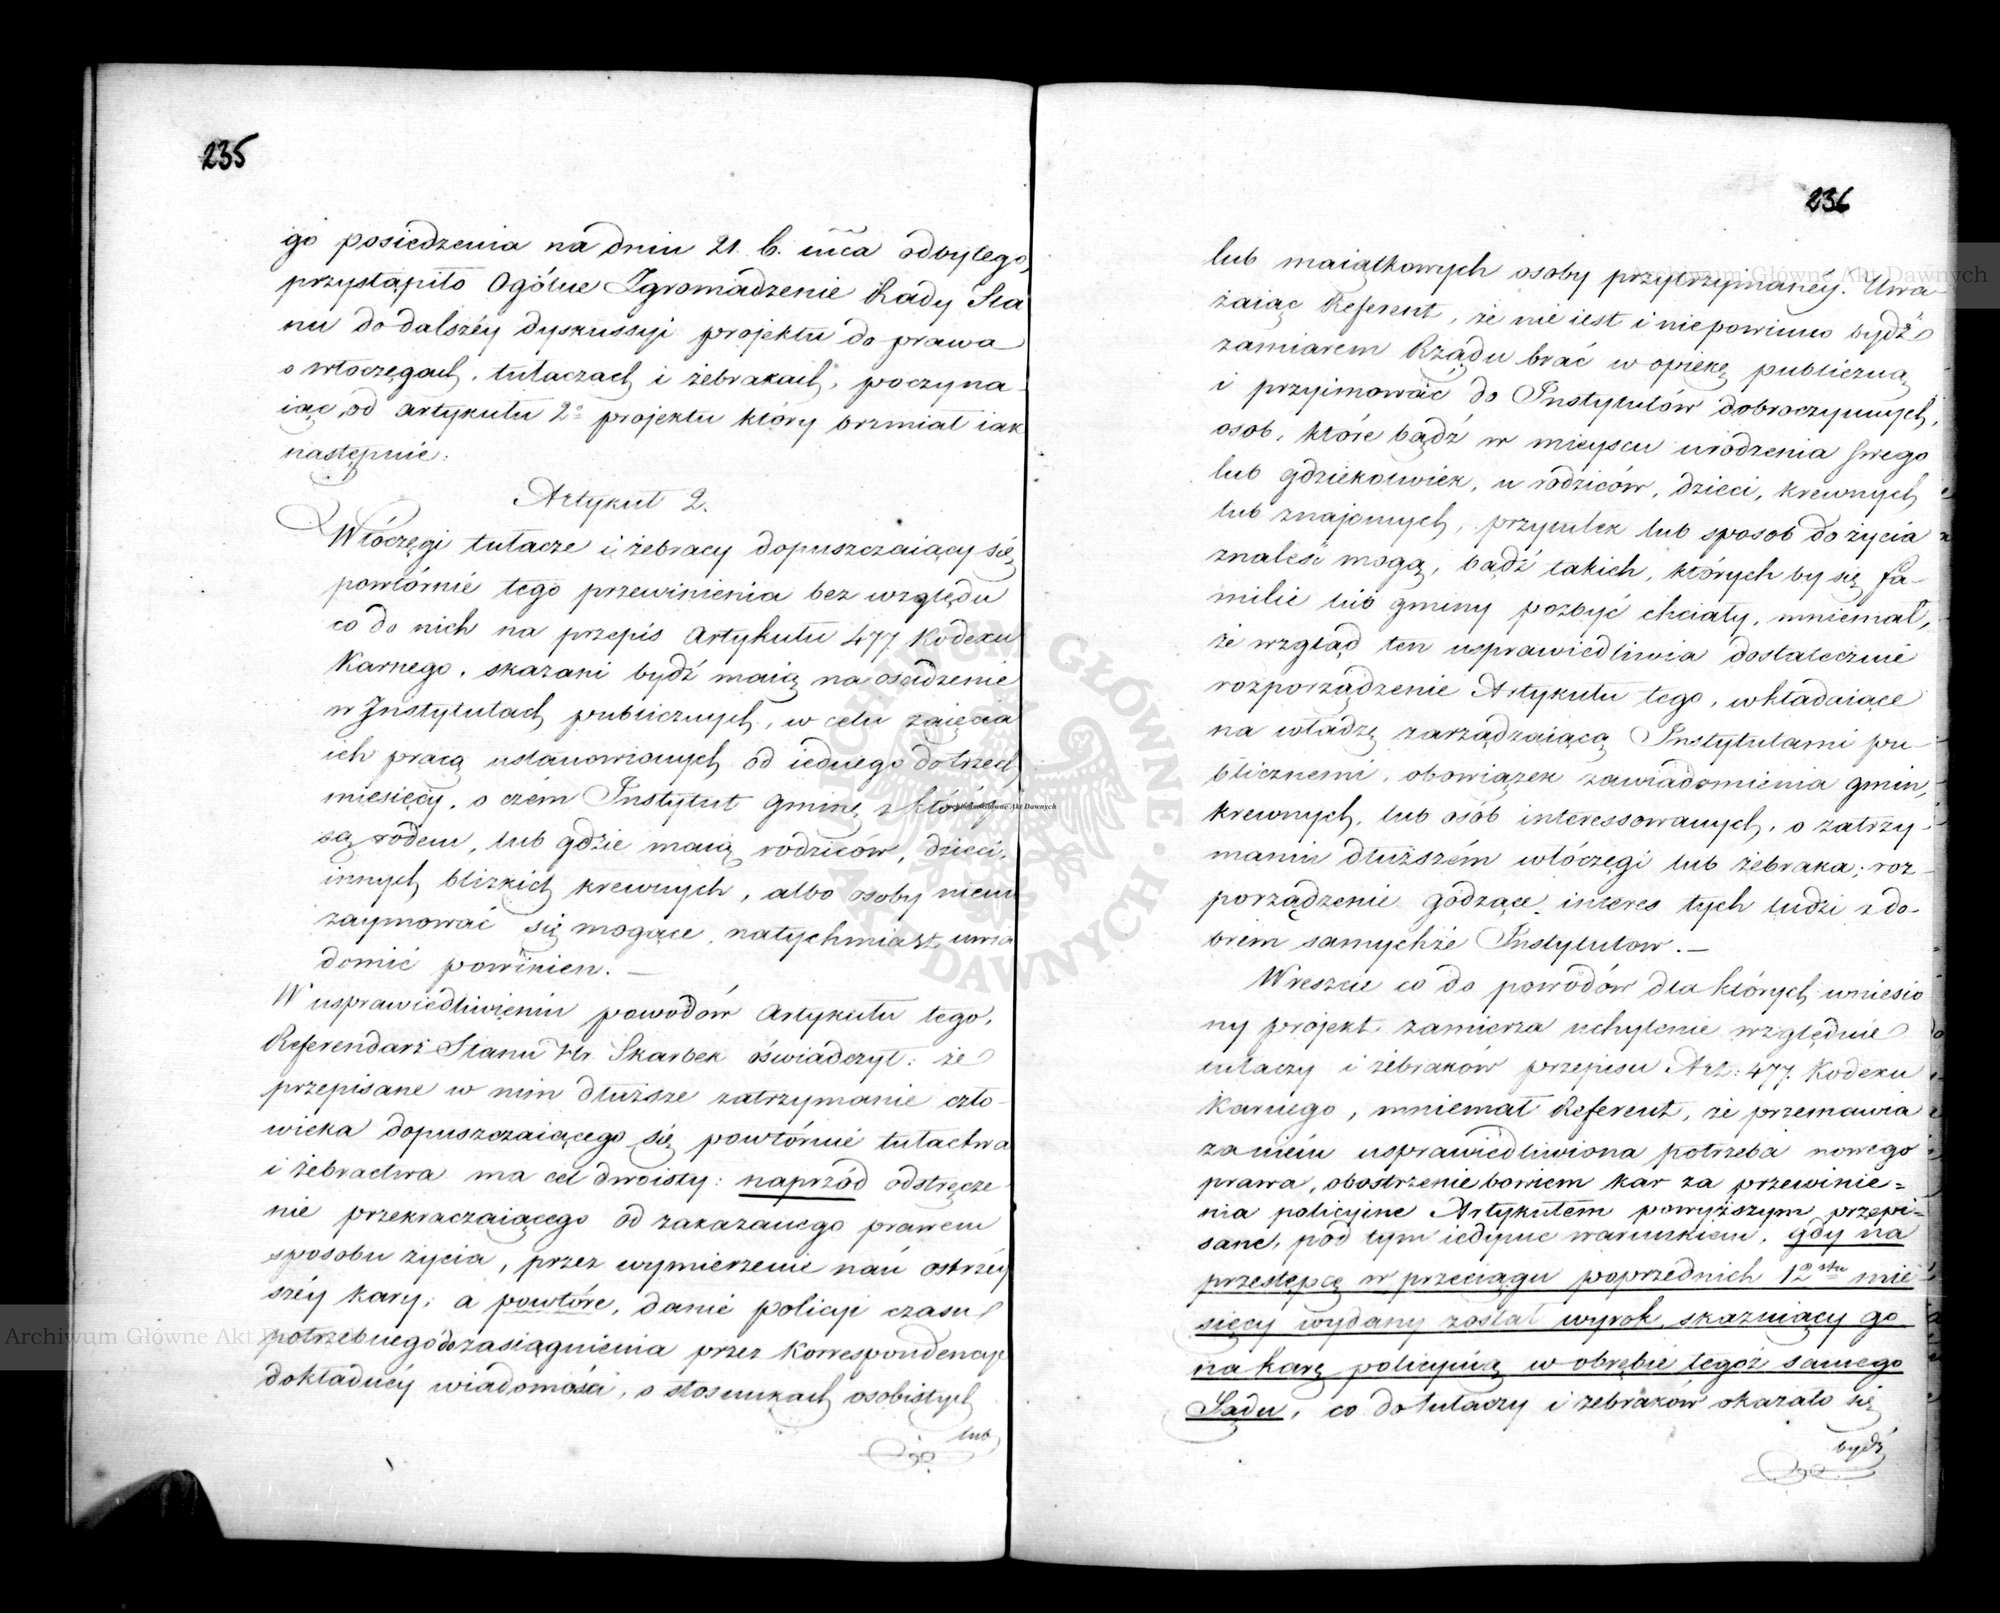 235
go posiedzenia na dniu 21. b. mca odbytego,
przystąpiło Ogólne Zgromadzenie Rady Sta
nu do dalszéy dyskussyi projektu do prawa
o włoczęgach, tułaczach i żebrakach, poczyna-
iąc od artykułu 2º projektu który brzmiał iak
następnie:
Artykuł 2.
Włóczęgi tułacze i żebracy dopuszczaiący się
powtórnie tego przewinienia bez względu
co do nich na przepis Artykułu 477 Kodexu
Karnego, skazani bydź maią na osadzenie
w Instytutach publicznych, w celu zaięcia
ich pracą ustanowionych od iednego do trzech
miesięcy, o czém Instytut gminę z któréy
są rodem, lub gdzie maią rodziców, dzieci,
innych blizkich krewnych, albo osoby niemi
zaymować się mogące, natychmiast uwia
domić powinien. —
W usprawiedliwieniu powodów Artykułu tego,
Referendarz Stanu Hr. Skarbek oświadczył: że
przepisane w nim dłuższe zatrzymanie czło-
wieka dopuszczaiącego się powtórnie tułactwa
i żebractwa ma cel dwoisty: naprzód odstręcze
nie przekraczaiącego od zakazanego prawem
sposobu życia, przez wymierzenie nań ostrzéy
széy kary; a powtóre, danie policyi czasu
potrzebnego do zasiągnienia przez Korrespondencye
dokładnéy wiadomości, o stosunkach osobistych
lub
236
lub maiątkowych osoby przytrzymanéy. Uwa
żaiąc Referent, że nie iest i nie powinno bydź
zamiarem Rządu brać w opiekę publiczną
i przyimować do Instytutów dobroczynnych,
osob, które bądź w mieyscu urodzenia swego
lub gdziekolwiek, u rodziców, dzieci, krewnych
lub znajomych, przytułek lub sposob do życia
znaleść mogą, bądź takich, których by się fa-
milie lub gminy pozbyć chciały, mniemał,
że wzgląd ten usprawiedliwia dostatecznie
rozporządzenie Artykułu tego, wkładaiące
na władzę zarządzaiącą Instytutami pu-
blicznemi, obowiązek zawiadomienia gmin,
krewnych, lub osób interessowanych, o zatrzy-
maniu dłuższém włóczęgi lub żebraka; roz-
porządzenie godzące interes tych ludzi z do-
brem samychże Instytutow. —
Wreszcie co do powodów dla których wniesio
ny projekt zamierza uchylenie względnie
tułaczy i żebraków przepisu Art: 477. Kodexu
Karnego, mniemał Referent, że przemawia
za niém usprawiedliwiona potrzeba nowego
prawa, obostrzenie bowiem kar za przewinie=
nia policyjne Artykułem powyższym przepi=
sane, pod tym iedynie warunkiem, gdy na
przestępcę w przeciągu poprzednich 12stu mie
sięcy wydany został wyrok, skazuiący go
na karę policyiną w obrębie tegoż samego
Sądu, co do tułaczy i żebraków okazało się
bydź